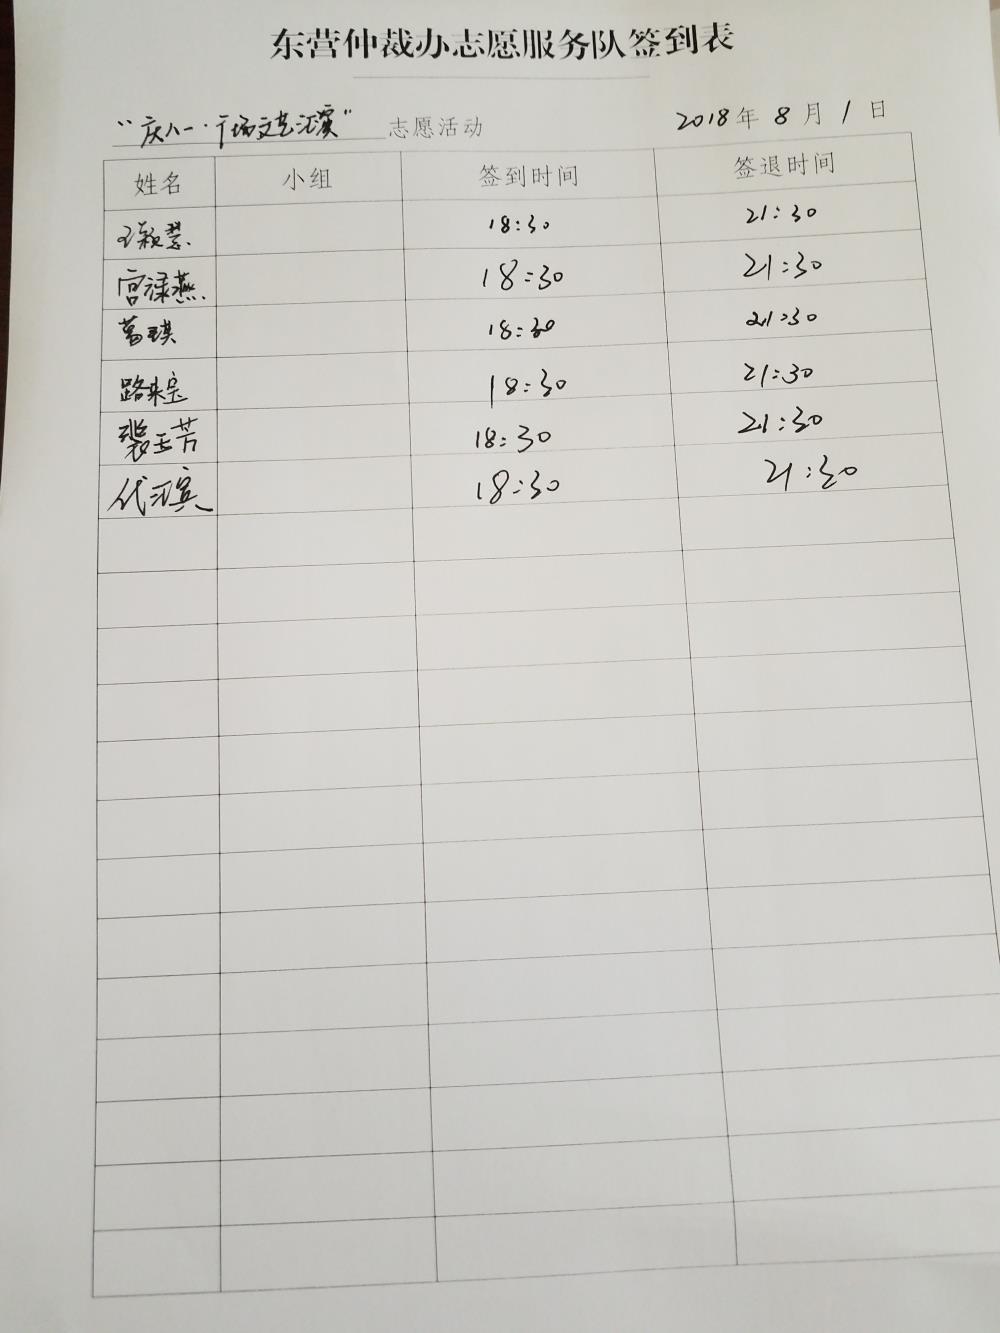 东营仲裁办志愿服务队签到表
“庆八一·广场文艺汇演” 志愿活动 2018年 8月 1日
姓名 小组 签到时间 签退时间
王颖慧 18:30 21:30
宫禄燕 18:30 21:30
葛琪 18:30 21:30
路来宝 18:30 21:30
裴玉芳 18:30 21:30
代汉宾 18:30 21:30